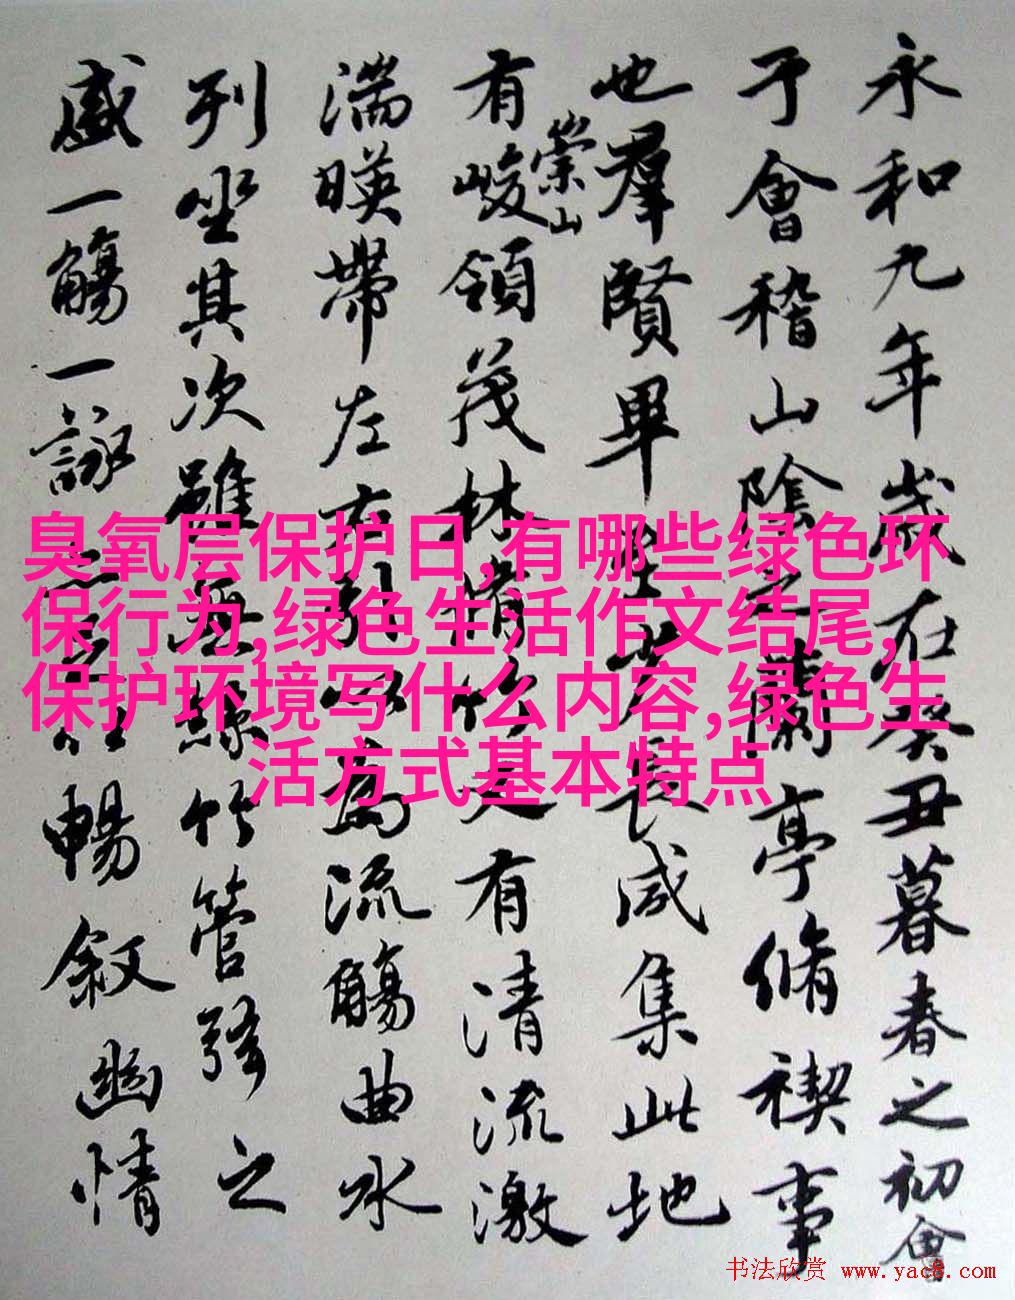 永和九年歲在癸丑暮春之初會
于會稽山陰之蘭亭脩禊事
也羣賢畢至少長咸集此地
有崇山峻領茂林脩竹又有清流激
湍暎帶左右引以為流觴曲水
列坐其次雖無絲竹管弦之
盛一觴一詠亦足以暢敘幽情
臭氧层保护日,有哪些绿色环
保行为,绿色生活作文结尾,
保护环境写什么内容,绿色生
活方式基本特点
书法欣赏 www.yac8.com